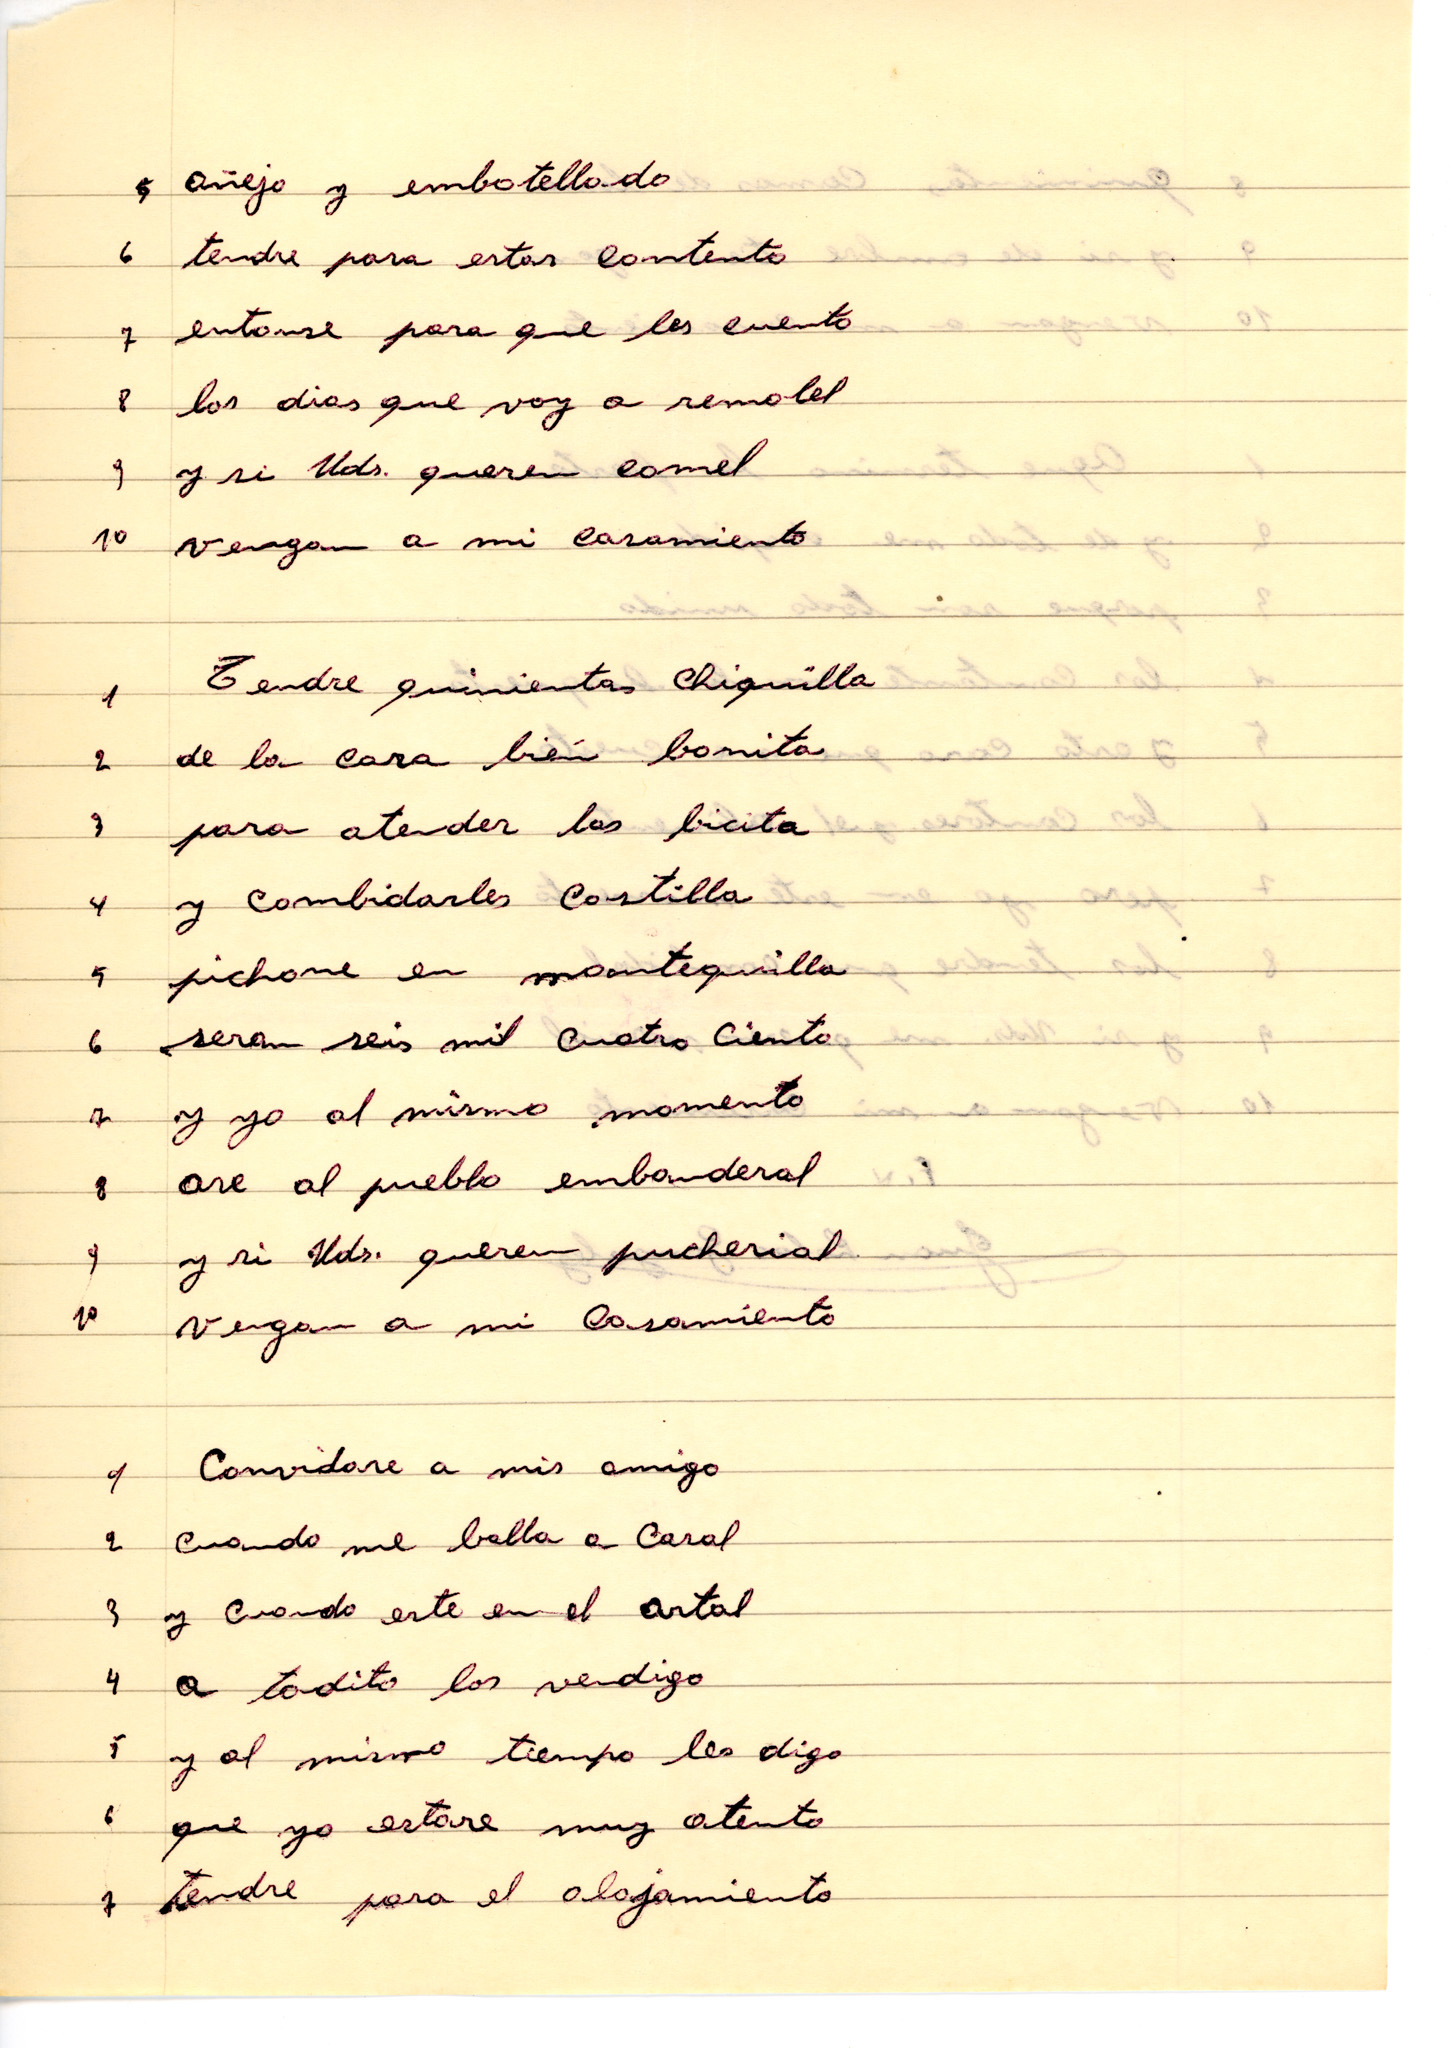 5 añejo y embotellado
6 tendre para estar contento
7 entonse para que les cuento
8 los dias que voy a remolel
9 y si Uds. queren comel
10 vengan a mi casamiento
1 Tendre quinientas chiquilla
2 de la cara bien bonita
3 para atender las bicita
4 y combidarles costilla
5 pichone en mantequilla
6 seran seis mil cuatro ciento
7 y yo al mismo momento
8 are al pueblo embanderal
9 y si Uds. queren pucherial
10 vengan a mi casamiento
1 Convidare a mis amigo
2 cuando me balla a casal
3 y cuando este en el artal
4 a todito los vendigo
5 y al mismo tiempo les digo
6 que yo estare muy atento
7 tendre para el alojamiento